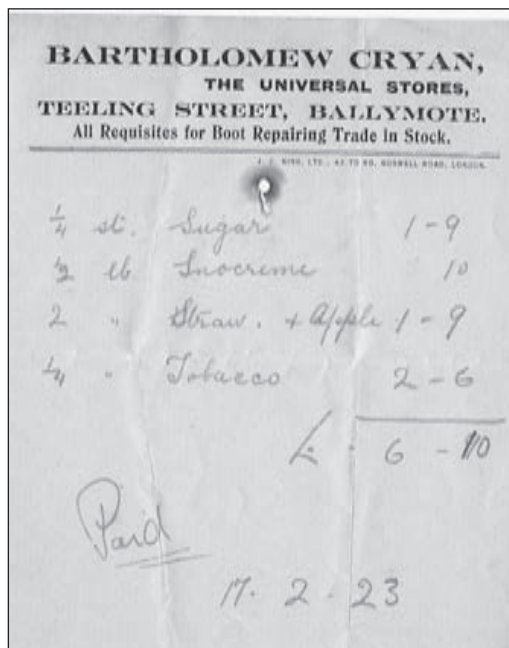 BARTHOLOMEW CRYAN,
THE UNIVERSAL STORES,
TEELING STREET, BALLYMOTE.
All Requisites for Boot Repairing Trade in Stock.
J. J. KING, LTD., 42 TO 50, GOSWELL ROAD, LONDON.
1/4 st. Sugar 1-9
1/2 lb Snocreme 10
2 " Straw. + Apple 1-9
1/4 " Tobacco 2-6
£. 6-10
Paid
17. 2. 23